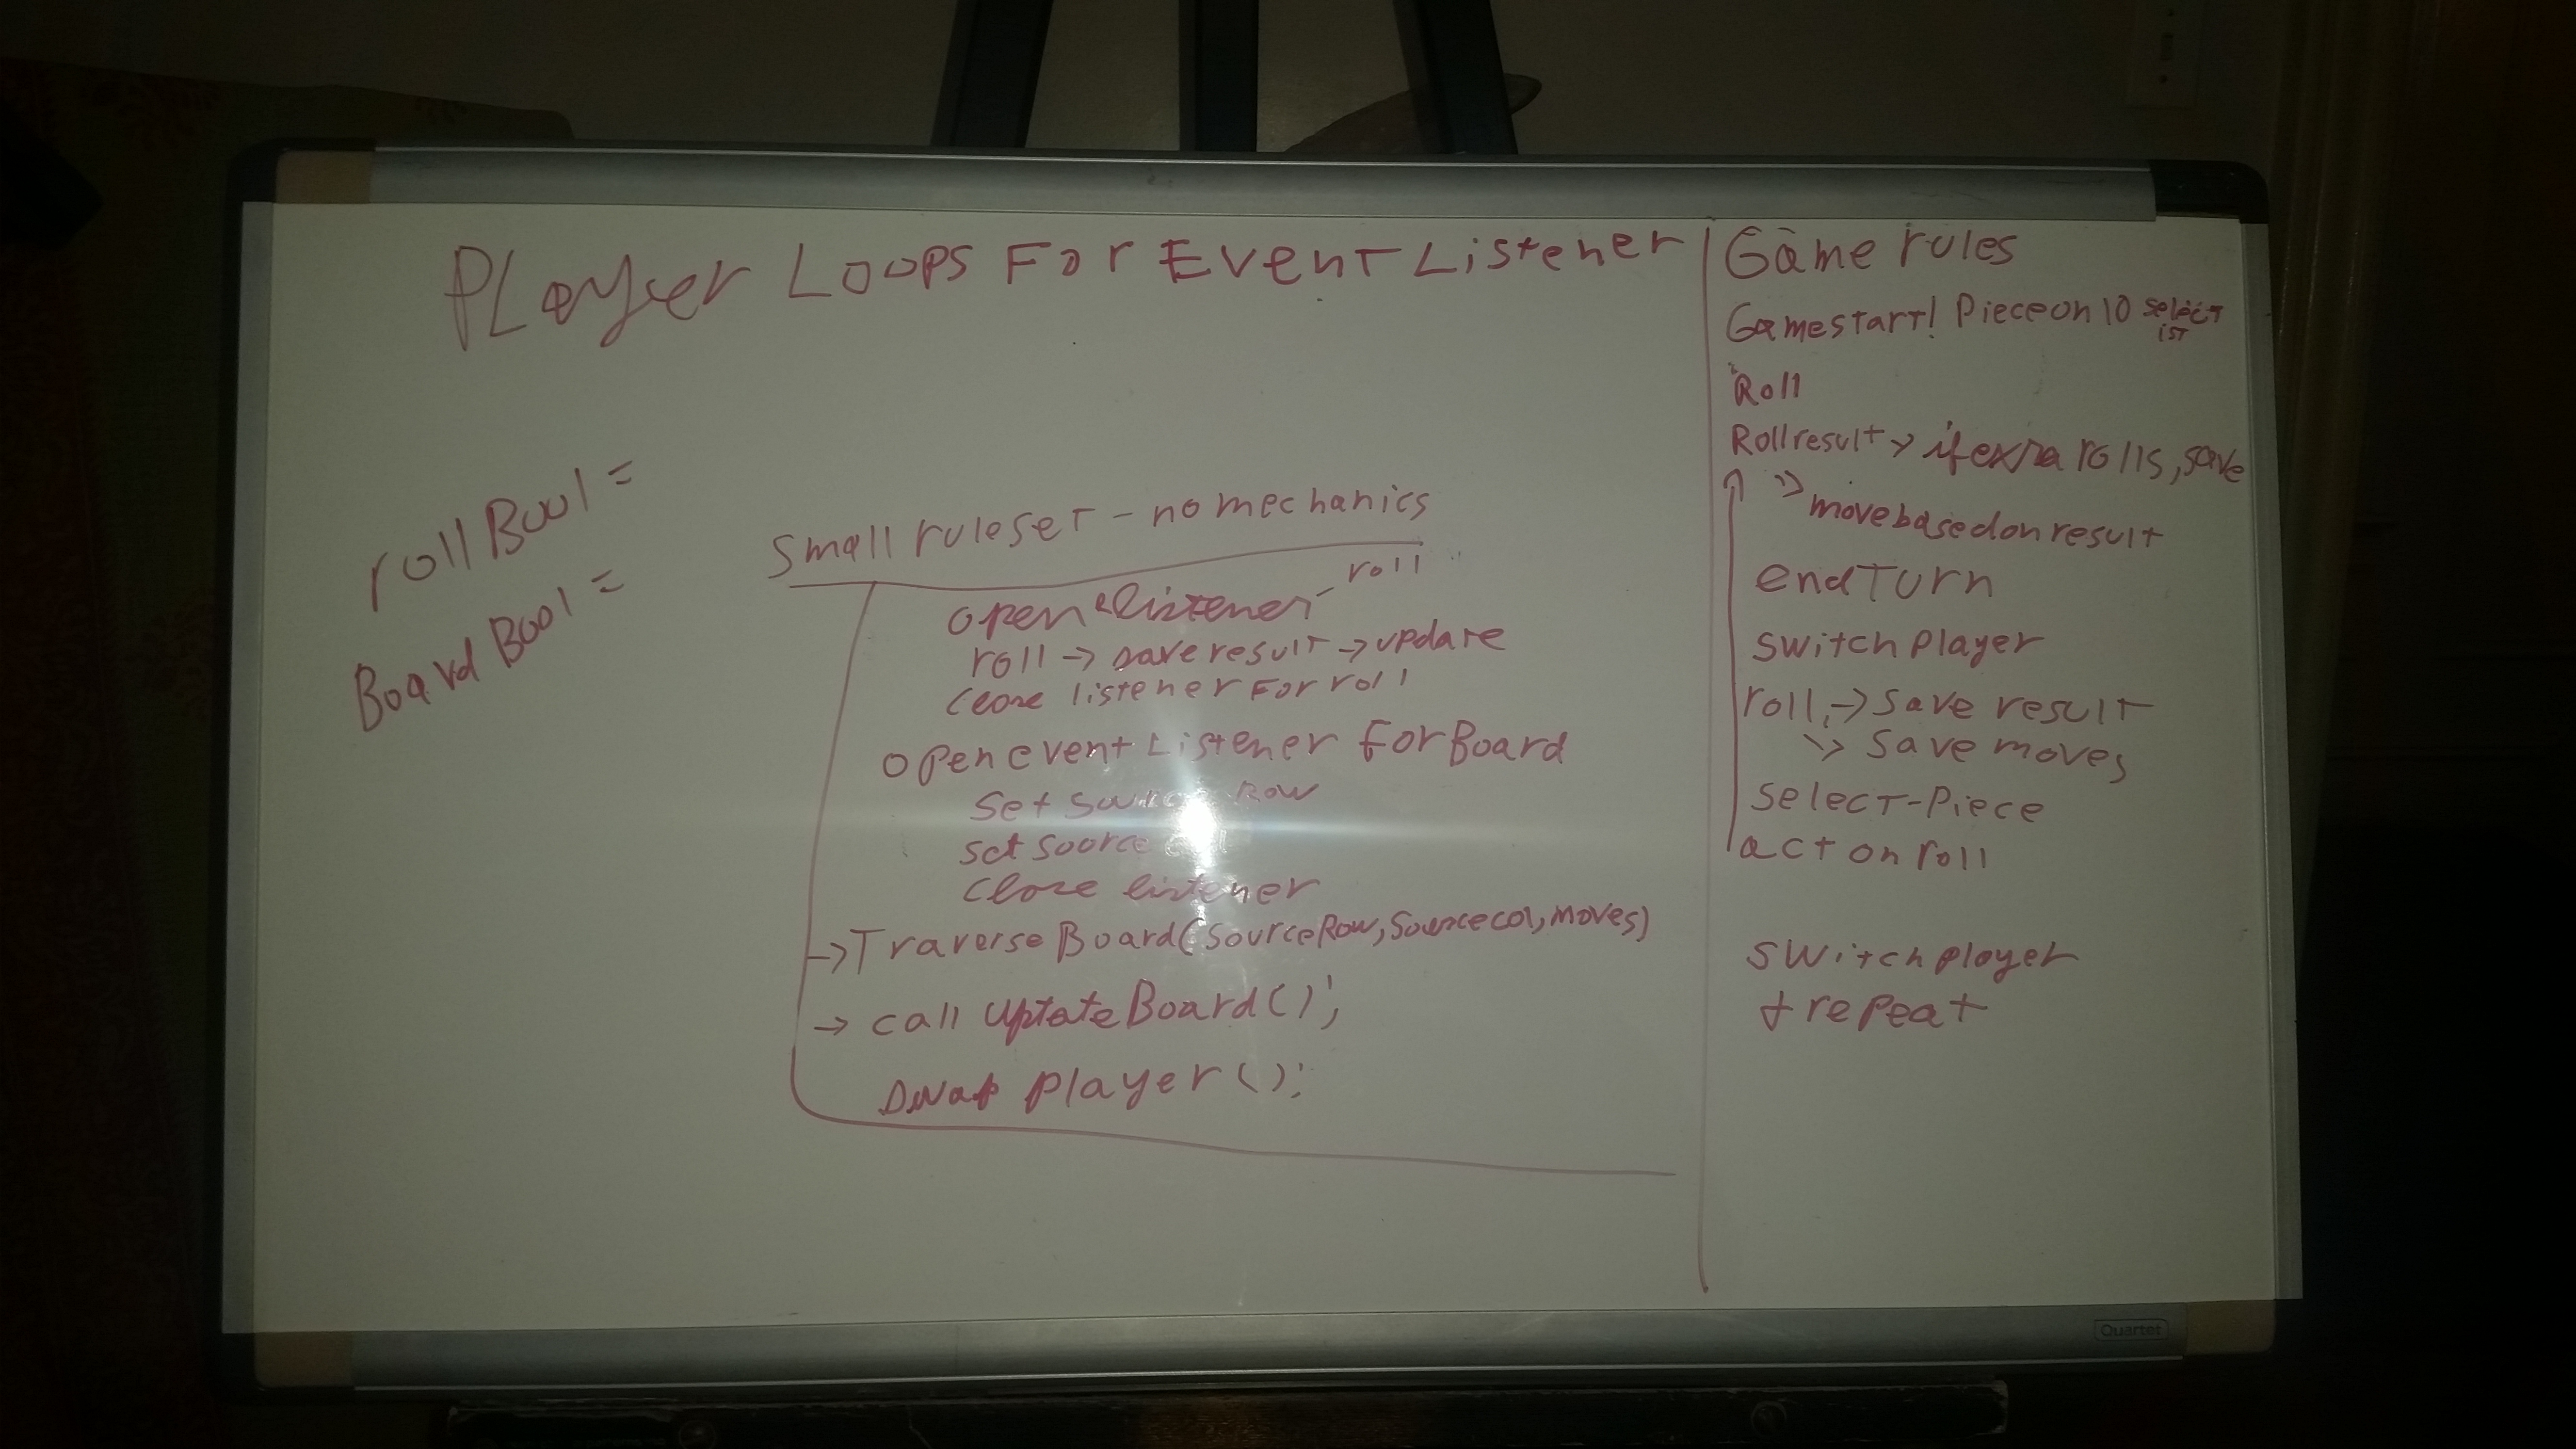 PLayer Loops For Event Listener
rollBool =
BoardBool =
Small ruleset - no mechanics
open listener - roll
roll -> save result -> update
close listener For roll
open event Listener for Board
Set Source Row
set source
close listener
-> TraverseBoard(SourceRow, Sourcecol, moves)
-> call UptateBoard();
swap player();
Game rules
Gamestart! Piece on 10 select
1st
Roll
Roll result -> if exra rolls, save
-> move based on result
end Turn
switch player
roll -> save result
-> save moves
select-Piece
act on roll
switch player
+ repeat
Quartet